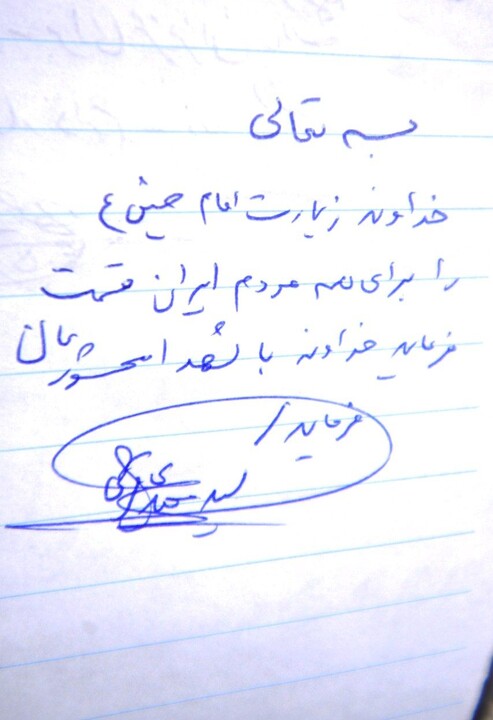 بسمه تعالی
خداوند زیارت امام حسین ع
را برای همه مردم ایران قسمت
فرماید خداوند با شهدا محشورمان
فرماید/
سید